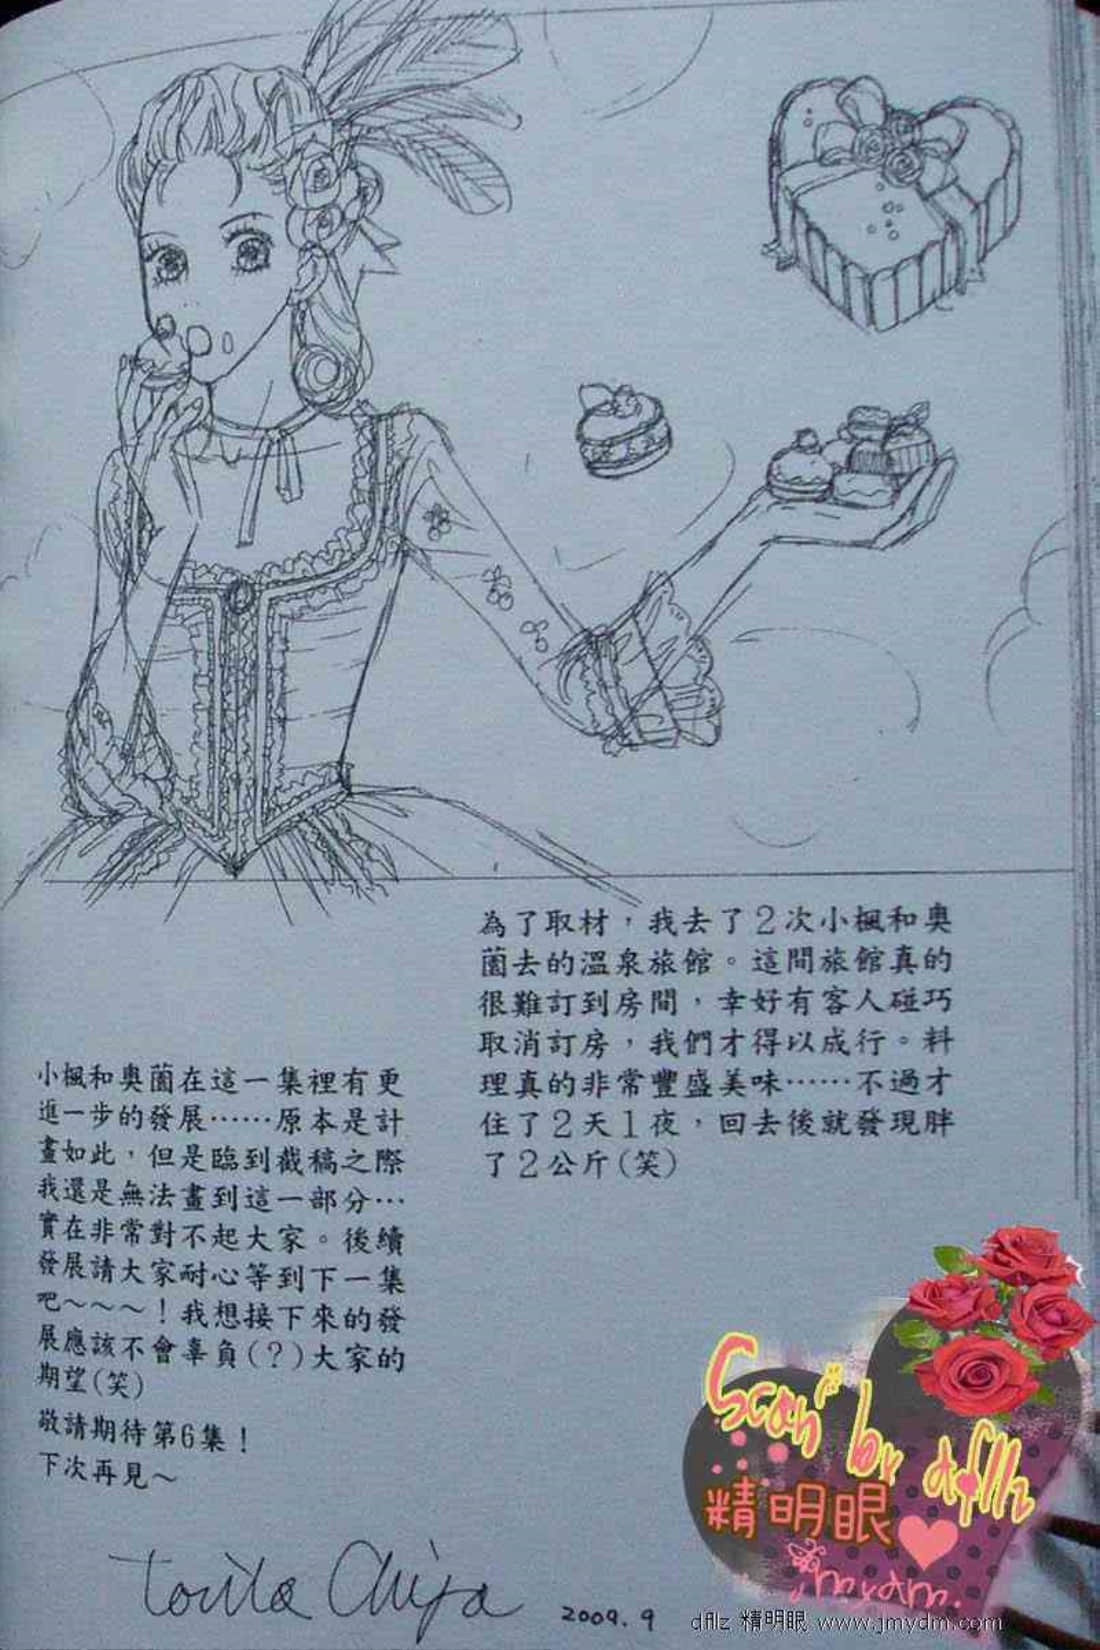 為了取材，我去了2次小楓和奧
薗去的溫泉旅館。這間旅館真的
很難訂到房間，幸好有客人碰巧
取消訂房，我們才得以成行。料
理真的非常豐盛美味……不過才
住了2天1夜，回去後就發現胖
了2公斤(笑)
小楓和奧薗在這一集裡有更
進一步的發展……原本是計
畫如此，但是臨到截稿之際
我還是無法畫到這一部分…
實在非常對不起大家。後續
發展請大家耐心等到下一集
吧～～～！我想接下來的發
展應該不會辜負(？)大家的
期望(笑)
敬請期待第6集！
下次再見～
Torila Chifa
2009.9
Scan by dflz
精明眼
jmydm.
dflz 精明眼 www.jmydm.com